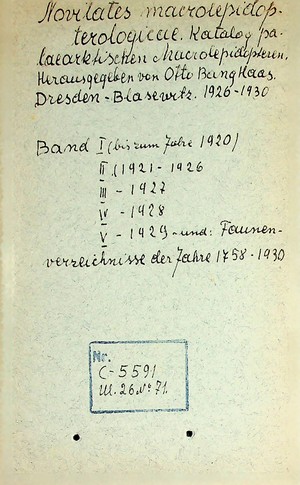 Novitates macrolepidop-
terologicae. Katalog pa-
laearktischen Macrolepidopteren.
Herausgegeben von Otto Bang Haas.
Dresden-Blasewitz. 1926-1930
Band I (bis zum Jahre 1920)
II (1921-1926
III - 1927
IV - 1928
V - 1929 - und: Faunen-
verzeichnisse der Jahre 1758-1930
Nr.
C-5591
Ш. 26 № 71.